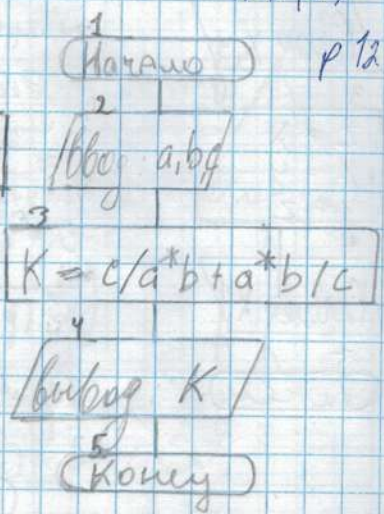 1
Начало
р 12
2
Ввод a,b,c
3
K = c/a*b+a*b/c
4
Вывод K
5
Конец